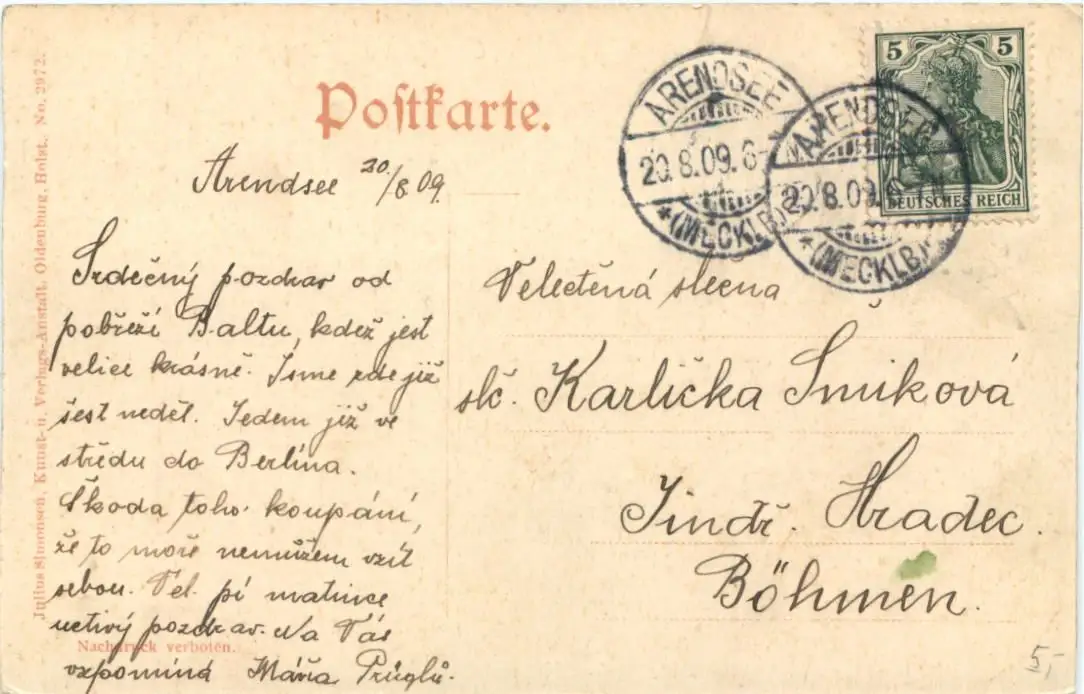 Postkarte.
Arendsee 20/8 09.
ARENDSEE
20.8.09.6-
*(MECKLB)
ARENDSEE
20.8.09. N
*(MECKLB.)*
5 5
DEUTSCHES REICH
Srdečný pozdrav od
pobřeží Baltu, kdež jest
velice krásně. Jsme zde již
šest neděl. Jedem již ve
středu do Berlína.
Škoda toho koupání,
že to moře nemůžem vzít
sebou. Vel. pí matince
uctivý pozdrav. Na Vás
vzpomíná Máňa Průglů.
Velectěná slečna
slč. Karlička Šmiková
Jindř. Hradec.
Böhmen.
Julius Simonsen, Kunst- u. Verlags-Anstalt, Oldenburg, Holst. No. 2972.
Nachdruck verboten.
5,-